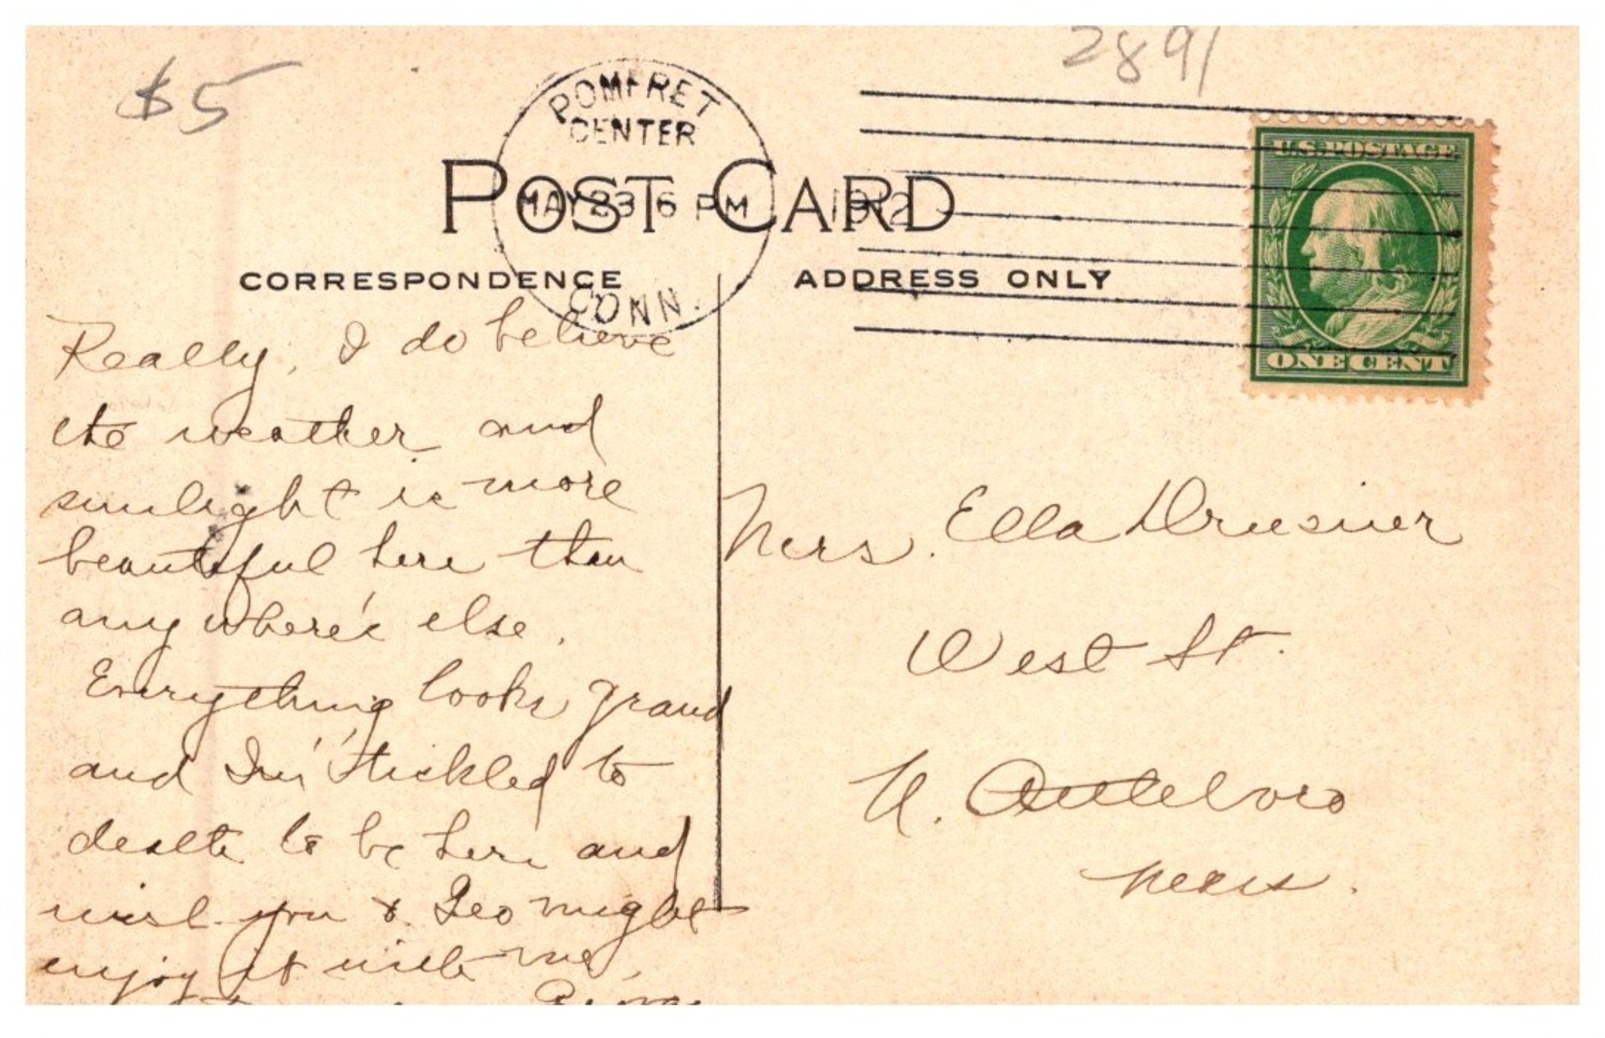 $5
2891
POMFRET
CENTER
MAY 23 6 PM 1912
CONN.
U.S. POSTAGE
ONE CENT
POST CARD
CORRESPONDENCE
ADDRESS ONLY
Really, I do believe
the weather and
sunlight is more
beautiful here than
any where's else.
Everything looks grand
and I'm tickled to
death to be here and
wish you & Geo might
enjoy it with me.
Mrs. Ella
West St.
N. Attleboro
Mass.